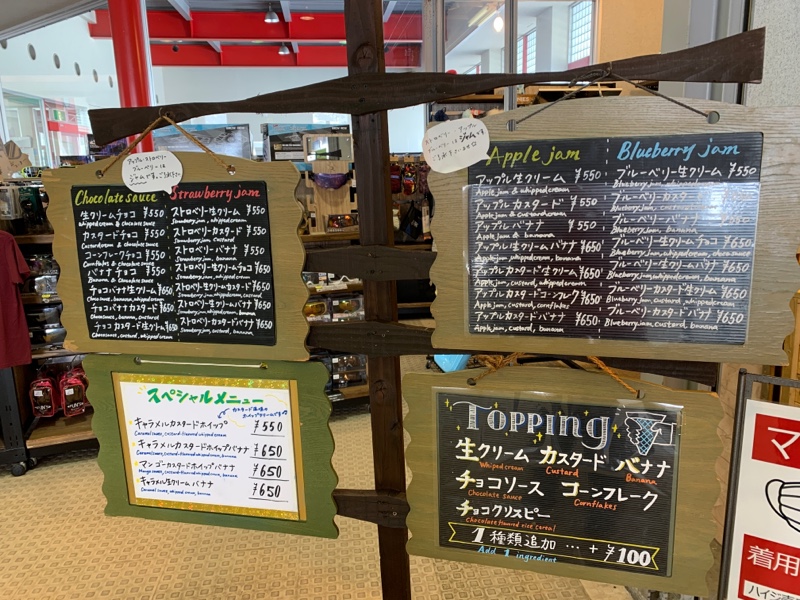 アップル・ストロベリー
ブルーベリーは
ジャムです。
Chocolate sauce
生クリームチョコ ¥550
whipped cream & chocolate sauce
カスタードチョコ ¥550
Custard cream & chocolate sauce
コーンフレークチョコ ¥550
Cornflakes & chocolate sauce
バナナチョコ ¥550
Banana & chocolate sauce
チョコバナナ生クリーム ¥650
Chocosauce, banana, whipped cream
チョコバナナカスタード ¥650
Chocosauce, banana, custard
チョコカスタード生クリーム ¥650
Chocosauce, custard, whipped cream
Strawberry jam
ストロベリー生クリーム ¥550
Strawberry jam, whipped cream
ストロベリーカスタード ¥550
Strawberry jam, custard
ストロベリーバナナ ¥550
Strawberry jam, banana
ストロベリー生クリームチョコ ¥650
ストロベリー生クリームバナナ ¥650
ストロベリーカスタード生クリーム ¥650
ストロベリーカスタードバナナ ¥650
Strawberry jam, custard, banana
ストロベリー・アップル
ブルーベリーはジャムを
Apple jam
アップル生クリーム ¥550
Apple jam & whipped cream
アップルカスタード ¥550
Apple jam & custard cream
アップルバナナ ¥550
Apple jam & banana
アップル生クリームバナナ ¥650
Apple jam, whipped cream, banana
アップルカスタード生クリーム ¥650
Apple jam, custard, whipped cream
アップルカスタードコーンフレーク ¥650
Apple jam, custard, cornflakes
アップルカスタードバナナ ¥650
Apple jam, custard, banana
Blueberry jam
ブルーベリー生クリーム ¥550
Blueberry jam, whipped cream
ブルーベリーカスタード ¥550
Blueberry jam, custard
ブルーベリーバナナ ¥550
Blueberry jam, banana
ブルーベリー生クリームチョコ ¥650
Blueberry jam, whipped cream, choco sauce
ブルーベリー生クリームバナナ ¥650
Blueberry jam, whipped cream, banana
ブルーベリーカスタード生クリーム ¥650
Blueberry jam, custard, whipped cream
ブルーベリーカスタードバナナ ¥650
Blueberry jam, custard, banana
スペシャルメニュー
カスタード風味の
ホイップクリームです
キャラメルカスタードホイップ ¥550
Caramel sauce, custard-flavored whipped cream
キャラメルカスタードホイップバナナ ¥650
Caramel sauce, custard-flavored whipped cream, banana
マンゴーカスタードホイップバナナ ¥650
Mango sauce, custard-flavored whipped cream, banana
キャラメル生クリームバナナ ¥650
Caramel sauce, whipped cream, banana
TOPPING
生クリーム カスタード バナナ
Whipped cream Custard Banana
チョコソース コーンフレーク
Chocolate sauce Cornflakes
チョコクリスピー
Chocolate flavored rice cereal
1種類追加…+¥100
Add 1 ingredient
マ
着用